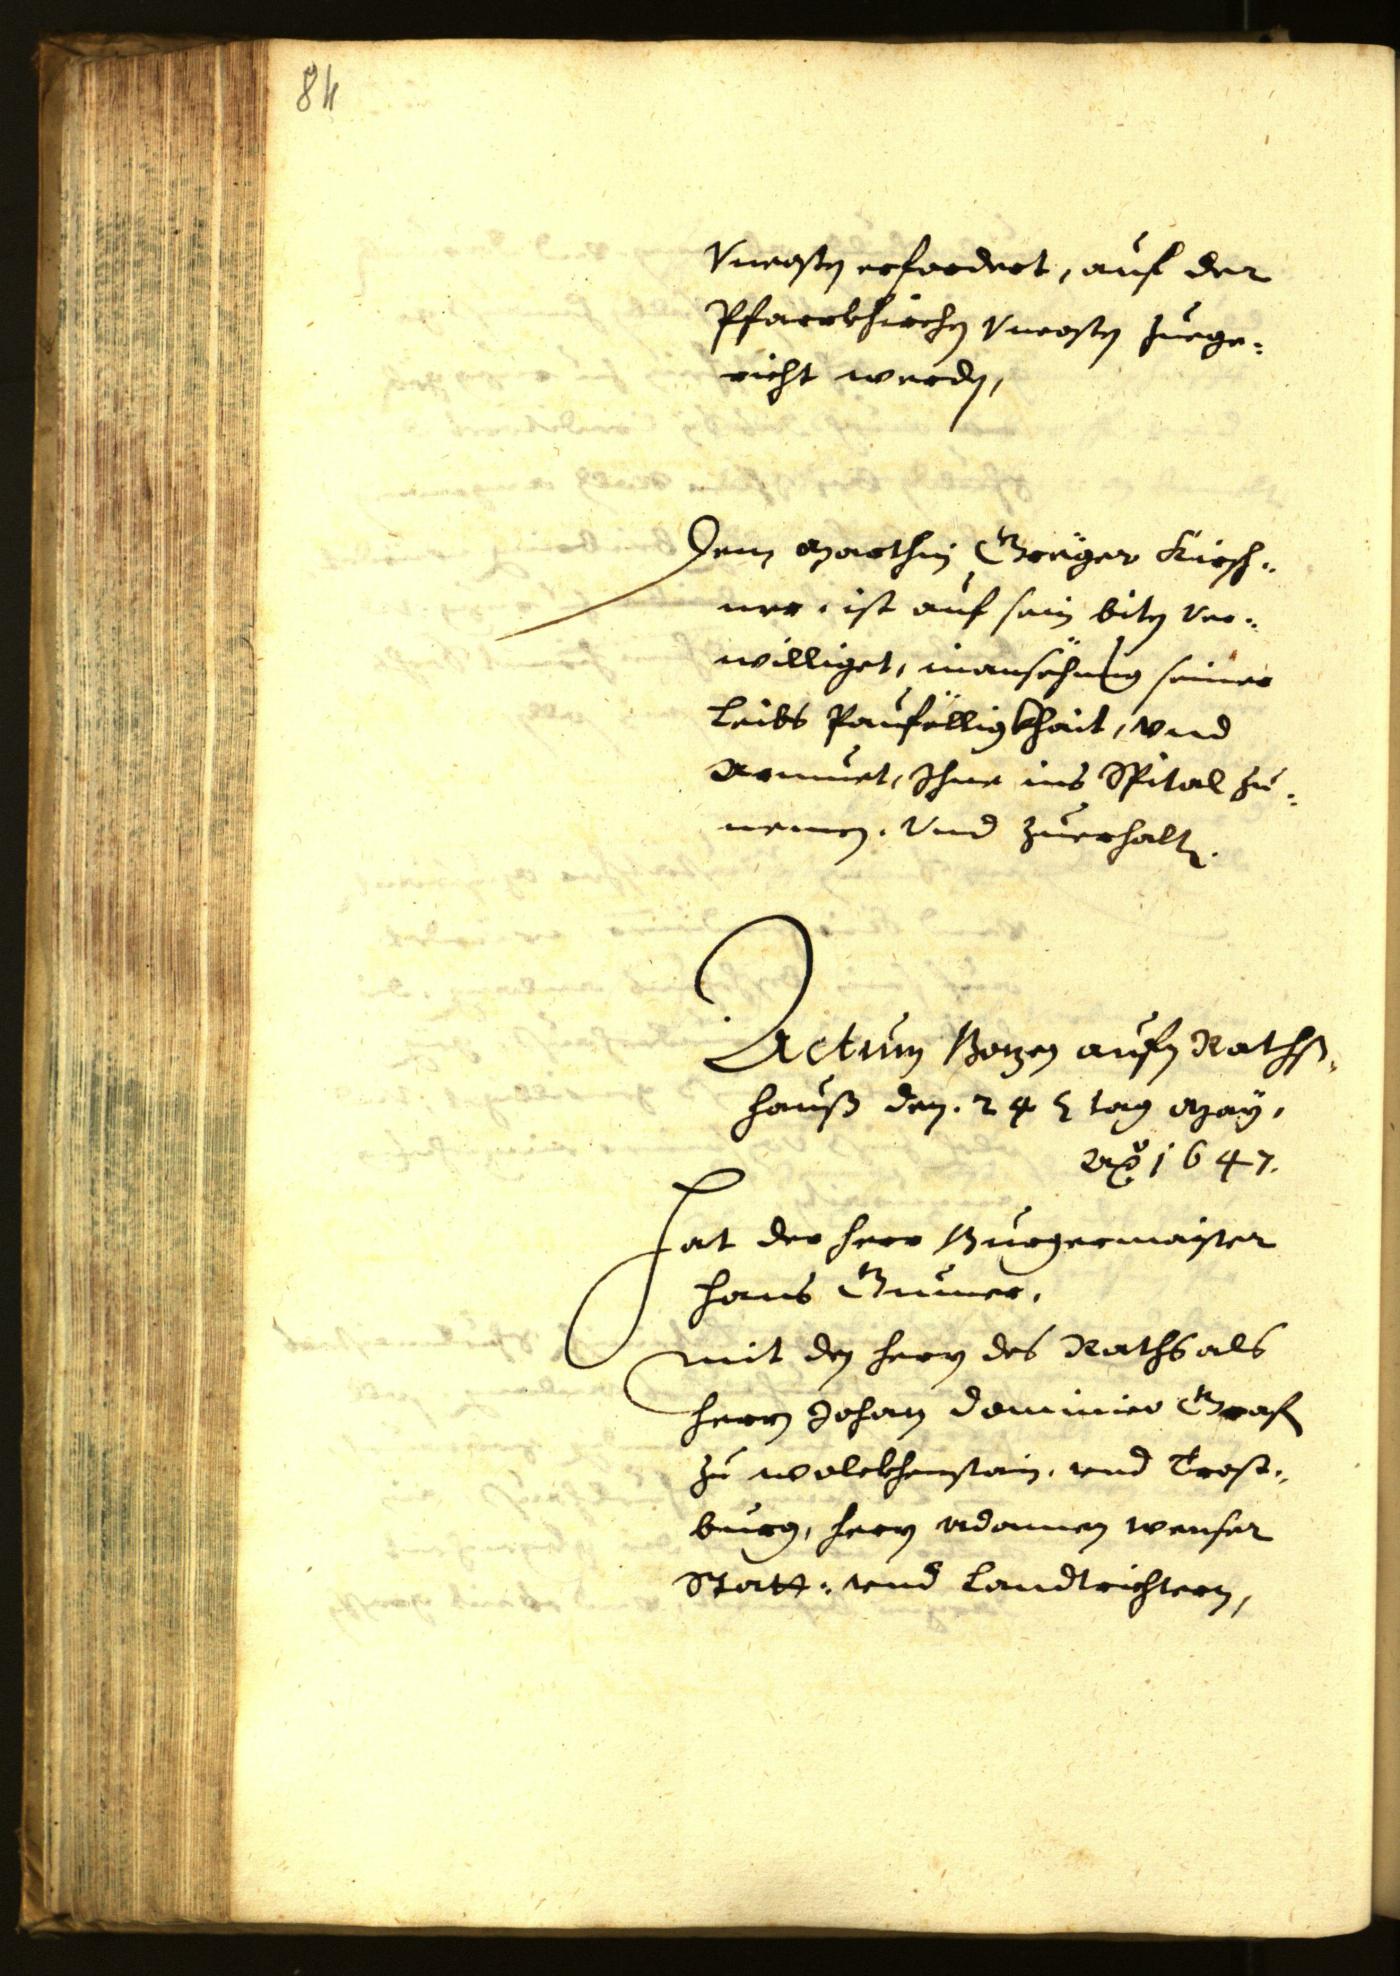 84
Vncosten erfordert, auf der
Pfarrkhirchen Vncosten zuege¬
richt werden,
Dem Marthin Greüger Kürsch¬
ner, ist auf sein biten ver¬
williget, in ansëhung seiner
Leibs Paufëlligkhait, vnd
Armuet, Ihne ins Spital zu¬
nemen. Vnd zuerhalten.
Actum Bozen aufn Raths¬
hauß den. 24 tag May,
Ao 1647.
Hat der herr Burgermaister
Hans Gumer,
mit den herrn des Raths als
herrn Johan Dominico Graf
zu Wolckhenstain, vnd Trost¬
burg, herrn Adamen Wenser
Statt: vnd Landtrichtern,